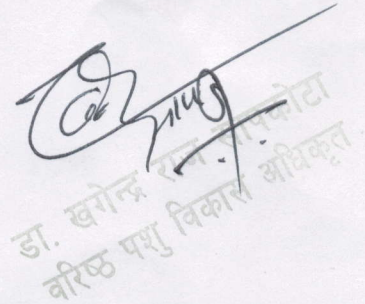 डा. खगेन्द्र राज सापकोटा
वरिष्ठ पशु विकास अधिकृत